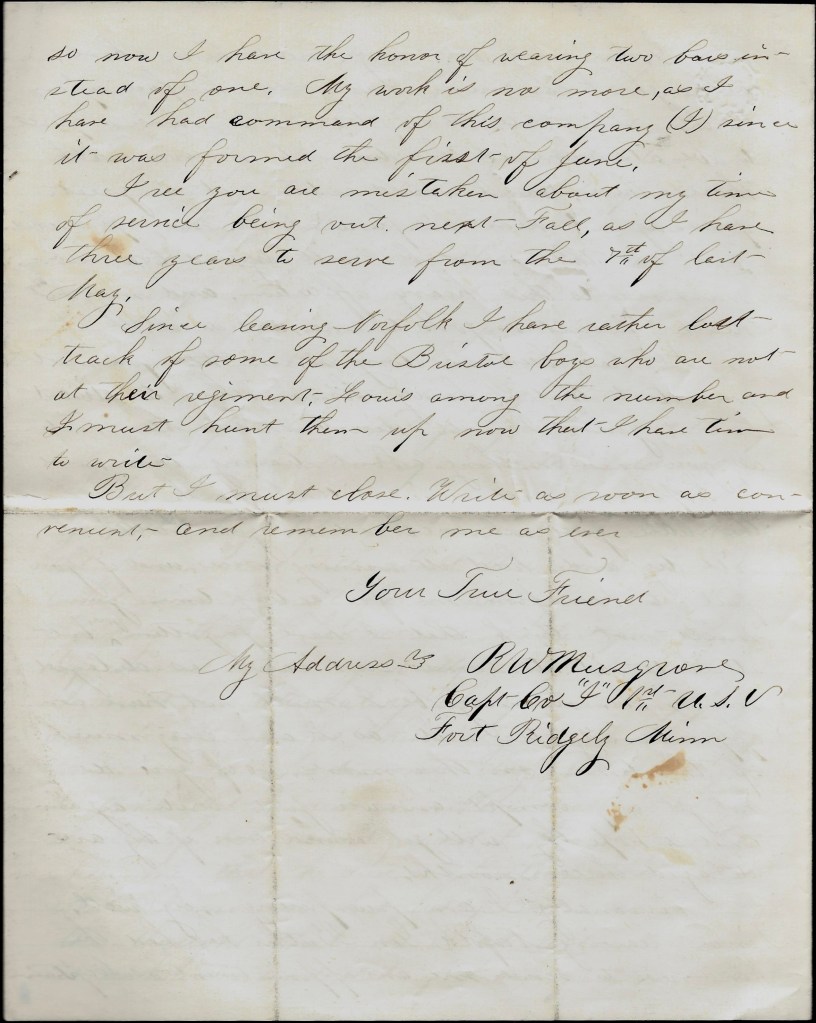 so now I have the honor of wearing two bars in-
stead of one. My work is no more, as I
have had command of this company (I) since
it was formed the first of June.
I see you are mistaken about my time
of service being out next Fall, as I have
three years to serve from the 7th of last
May.
Since leaving Norfolk I have rather lost
track of some of the Bristol boys who are not
at their regiment, Louis among the number and
I must hunt them up now that I have time
to write
But I must close. Write as soon as con-
venient, and remember me as ever
Your True Friend
My Address is R W Musgrove
Capt Co "I" 1st U. S. V
Fort Ridgely Minn